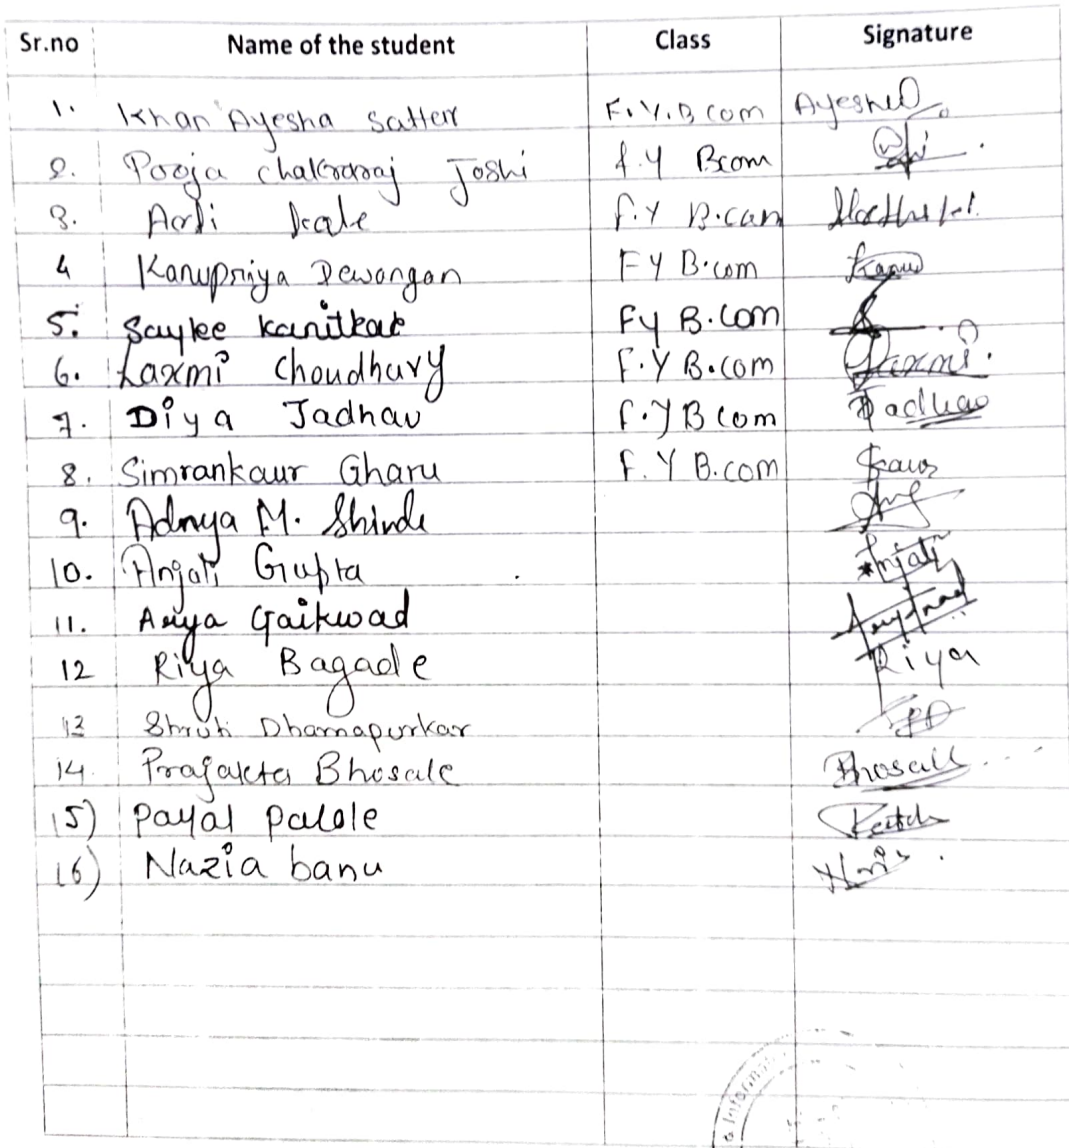 Sr.no Name of the student Class Signature
1. Khan Ayesha Satter F.Y.B com Ayesha
2. Pooja Joshi f.y Bcom
3. kale F.Y B.com
4 Kanupriya Dewangan FY B.com Kanu
5. Saylee Kanitkar Fy B.com
6. Laxmi Choudhury F.Y B.com Laxmi.
7. Diya Jadhav F.Y B com Jadhav
8. Simrankaur Gharu F.Y B.com Kaur
9. Adnya M. Shinde
10. Anjali Gupta Anjali
11. Arya Gaikwad
12 Riya Bagade Riya
13 Shruti Dhamapurkar
14. Prajakta Bhosale Bhosale
15) Payal
16) Nazia banu